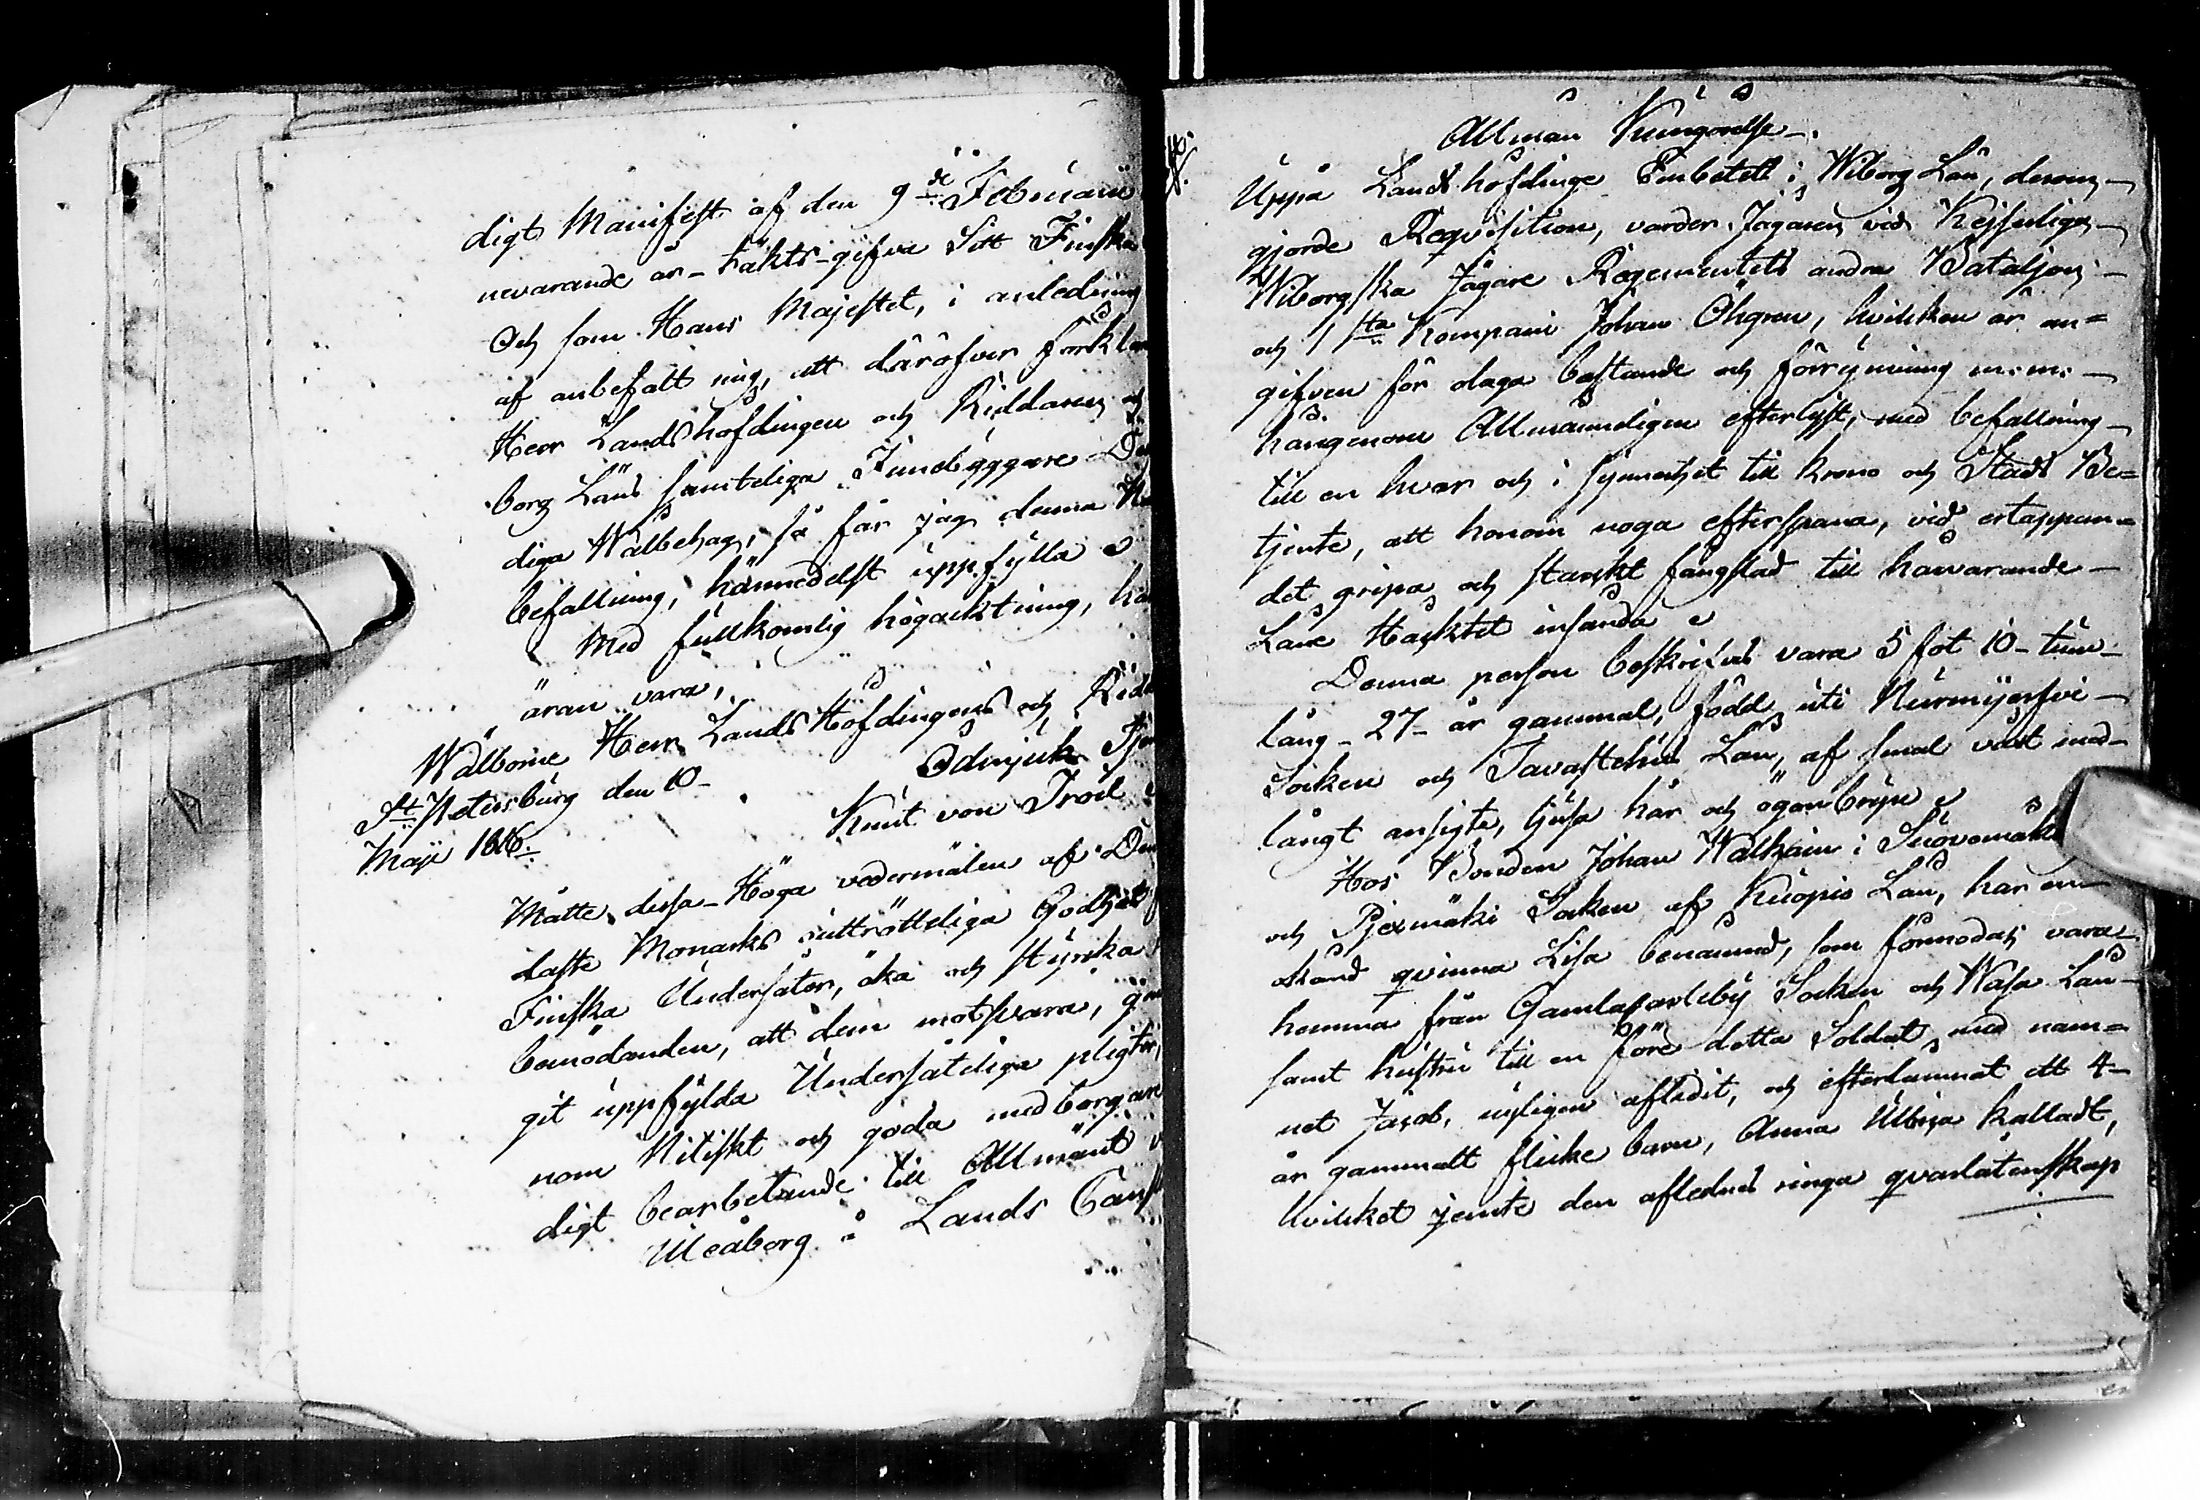 digt Manifest af den 9de Februarii
nevarande år täkts gifva Sitt Finska
Och som Hans Majestet, i anledning
af anbefalt mig, att däröfver förklar
Herr Landshöfdingen och Riddaren
borg Läns samteliga Innebyggare
diga Wälbehag, så får jag denna
befallning, härmedelst uppfylla
Med fullkomlig högacktning,
äran vara,
Wälborne Herr LandsHöfdingens och
Ödmjuk
St Petersburg den 10
Maji 1816.
Knut von Troil
Måtte dessa Höga vedermälen af
daste Monarks outtrötteliga Godhet
Finska Undersåter, öka och styrka
bemödanden, att dem motsvara,
git uppfylda Undersåteliga pligter,
nom Nitiskt och goda medborgare
digt bearbetande till Allmänt
Uleåborg å Lands
Allmän Kungörelse.
Uppå Landshöfdinge Embetett i Wiborg Län, derom
gjorde Reqvisition, varder Jägaren vid Kejserliga
Wiborgska Jägare Regementets andra Bataljon
och 1sta Kompani Johan Öhgren, hvilken är an=
gifven för olaga bestande och förrymning m: m:
härigenom Allmänneligen efterlyst, med befallning
till en hvar och i synnerhet till krono och Stads Be=
tjente, att honom noga efterspana, vid ertappan=
det gripa och starkt fängslad till härvarande
Läne Häcktet insända
Denna person beskrifves vara 5 fot 10 tum
lång 27 år gammal, född uti Nurmijerfvi
Socken och Tavastehus Län, af smal växt med
långt ansigte, ljusa hår och ögonbryn
Hos Bonden Johan Walkain i
och Pjexmäki Socken af Kuopio Län, har en
okänd qvinna Lisa benämnd, som förmodas vara
hemma från Gamlakarleby Socken och Wasa Län
samt hustru till en före detta Soldat med nam=
net Jacob, nyligen aflidit, och efterlämnat ett 4
år gammalt flicke barn, Anna Ulrica kalladt,
hvilket jemte den aflednes ringa qvarlåtenskap